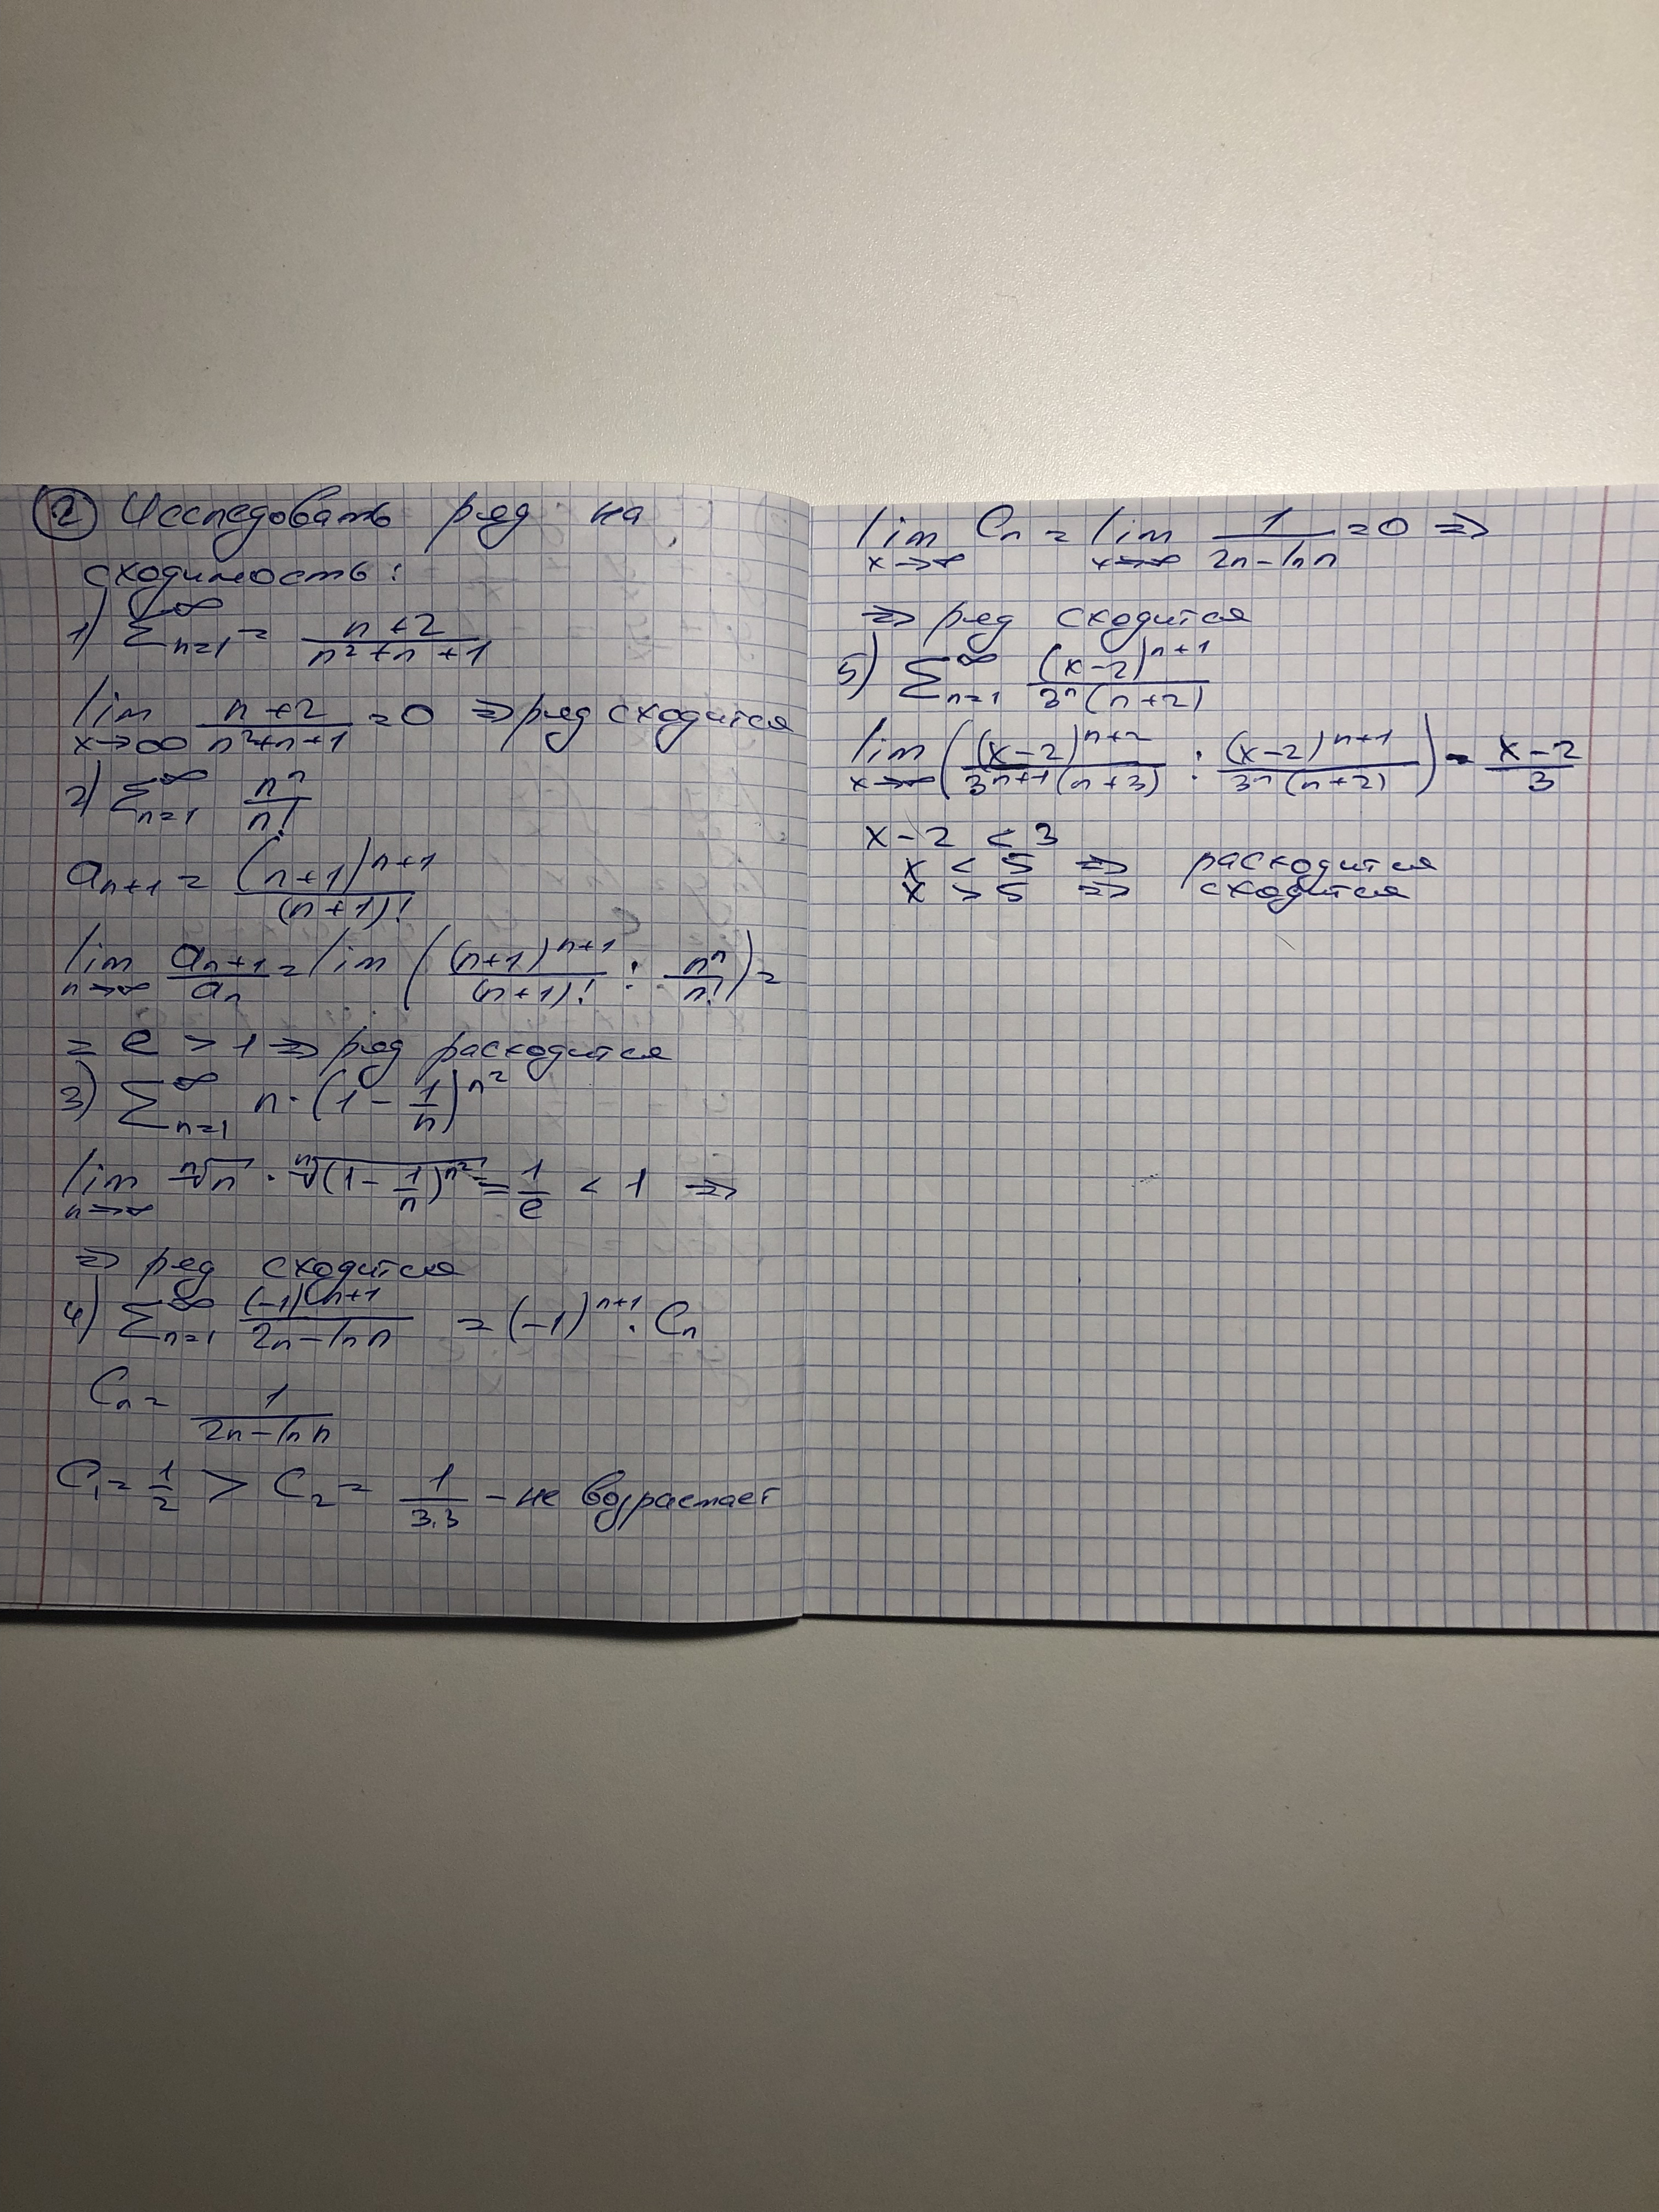 ② Исследовать ряд на
сходимость:
1) ∑_{n=1}^∞ = (n+2)/(n²+n+1)
lim_{x→∞} (n+2)/(n²+n+1) = 0 ⇒ ряд сходится
2) ∑_{n=1}^∞ n^n/n!
a_{n+1} = (n+1)^{n+1}/(n+1)!
lim_{n→∞} a_{n+1}/a_n = lim ((n+1)^{n+1}/(n+1)! : n^n/n!) =
= e > 1 ⇒ ряд расходится
3) ∑_{n=1}^∞ n·(1 - 1/n)^{n²}
lim_{n→∞} ⁿ√n · ⁿ√((1 - 1/n)^{n²}) = 1/e < 1 ⇒
⇒ ряд сходится
4) ∑_{n=1}^∞ (-1)^{n+1}/(2n - ln n) = (-1)^{n+1} · C_n
C_n = 1/(2n - ln n)
C_1 = 1/2 > C_2 = 1/3.3 - не возрастает
lim_{x→∞} C_n = lim_{x→∞} 1/(2n - ln n) = 0 ⇒
⇒ ряд сходится
5) ∑_{n=1}^∞ (x-2)^{n+1}/(3^n(n+2))
lim_{x→∞} ((x-2)^{n+2}/(3^{n+1}(n+3)) : (x-2)^{n+1}/(3^n(n+2))) = (x-2)/3
x - 2 < 3
x < 5 ⇒ расходится
x > 5 ⇒ сходится